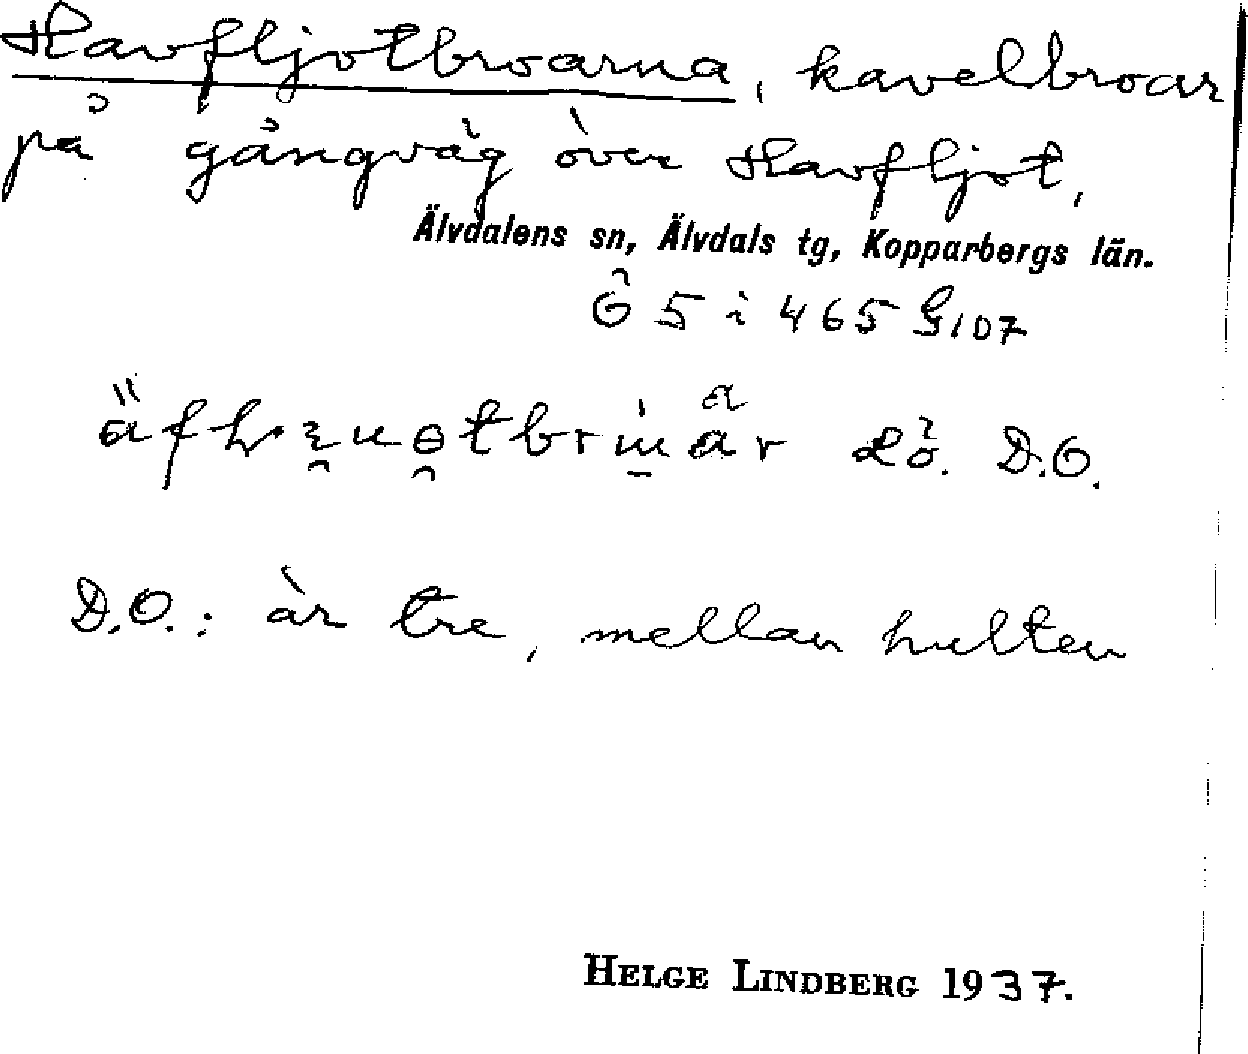 Havfljotbroarna, kavelbroar
på gångväg över Havfljot,
Älvdalens sn, Älvdals tg, Kopparbergs län.
Ö 5 i 465 G107
D.O.
D.O.: är tre, mellan hulten
HELGE LINDBERG 1937.